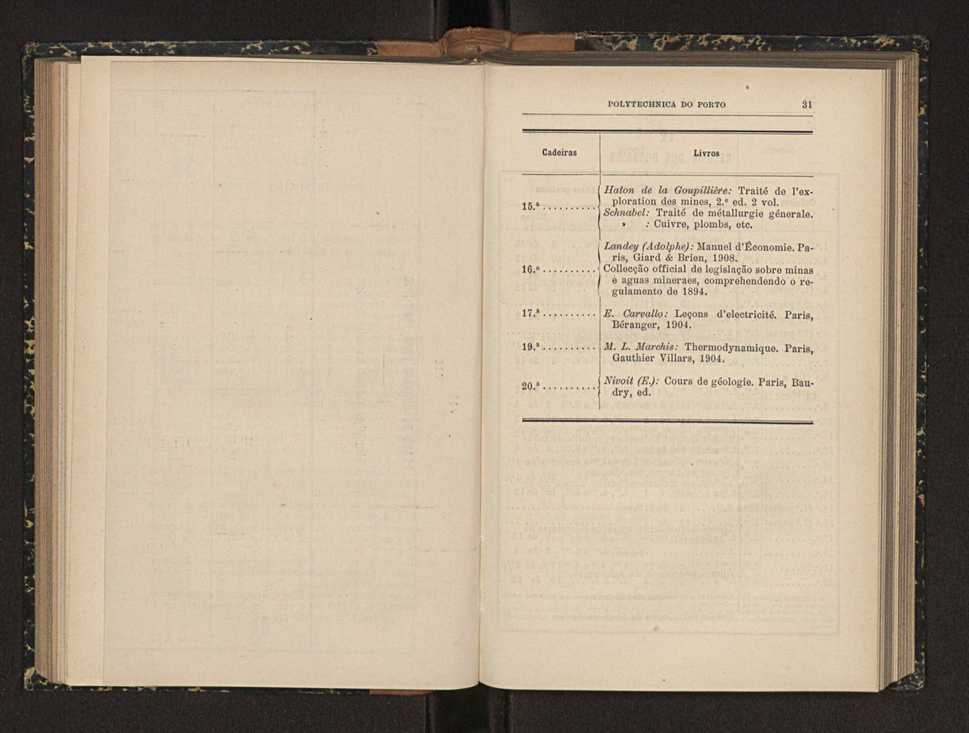 POLYTECHNICA DO PORTO 31
Cadeiras Livros
15.ª . . . . . . . . . . Haton de la Goupillière: Traité de l'ex-
ploration des mines, 2.ª ed. 2 vol.
Schnabel: Traité de métallurgie génerale.
» : Cuivre, plombs, etc.
16.ª . . . . . . . . . . Landey (Adolphe): Manuel d'Économie. Pa-
ris, Giard & Brien, 1908.
Collecção official de legislação sobre minas
e aguas mineraes, comprehendendo o re-
gulamento de 1894.
17.ª . . . . . . . . . . E. Carvallo: Leçons d'electricité. Paris,
Béranger, 1904.
19.ª . . . . . . . . . . M. L. Marchis: Thermodynamique. Paris,
Gauthier Villars, 1904.
20.ª . . . . . . . . . . Nivoit (E.): Cours de géologie. Paris, Bau-
dry, ed.